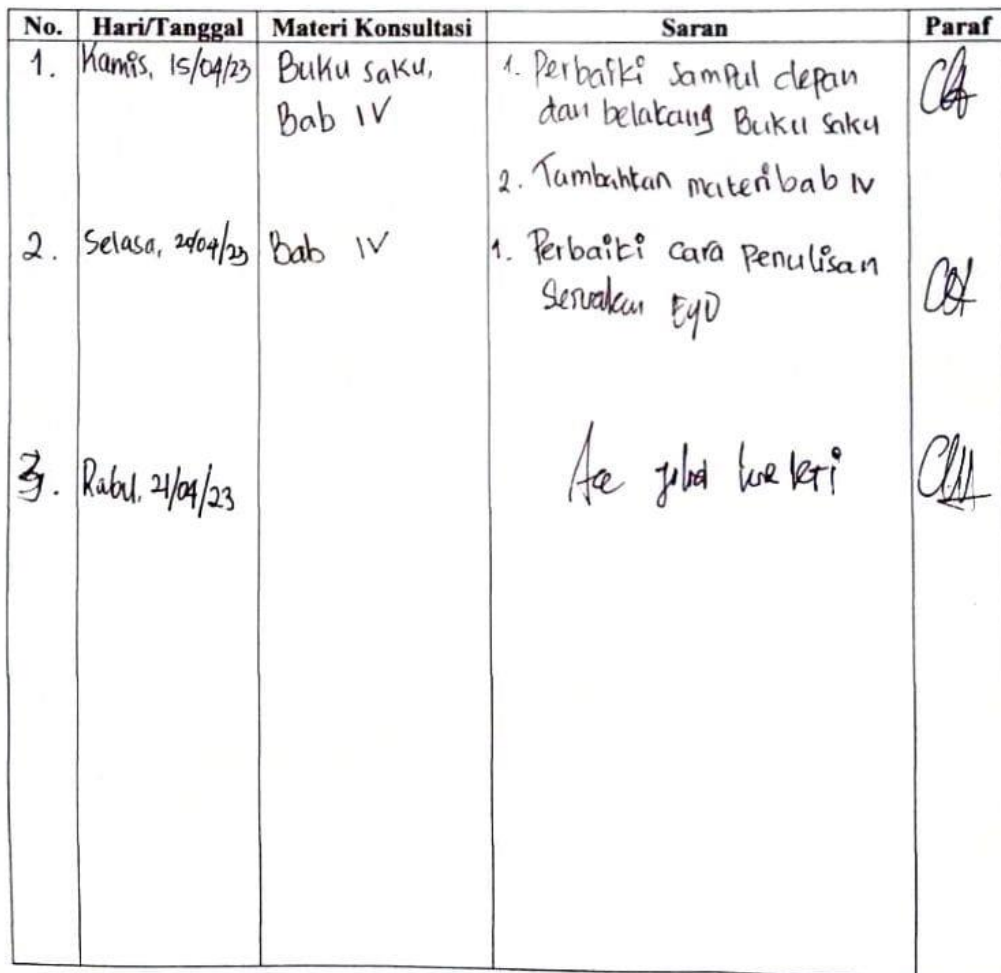 No. Hari/Tanggal Materi Konsultasi Saran Paraf
1. Kamis, 15/04/23 Buku saku, 1. Perbaiki Sampul depan
Bab IV dan belakang Buku saku
2. Tambahkan materi bab IV
2. Selasa, 20/04/23 Bab IV 1. Perbaiki cara Penulisan
Sesuaikan EYD
3. Rabu, 21/04/23 Acc